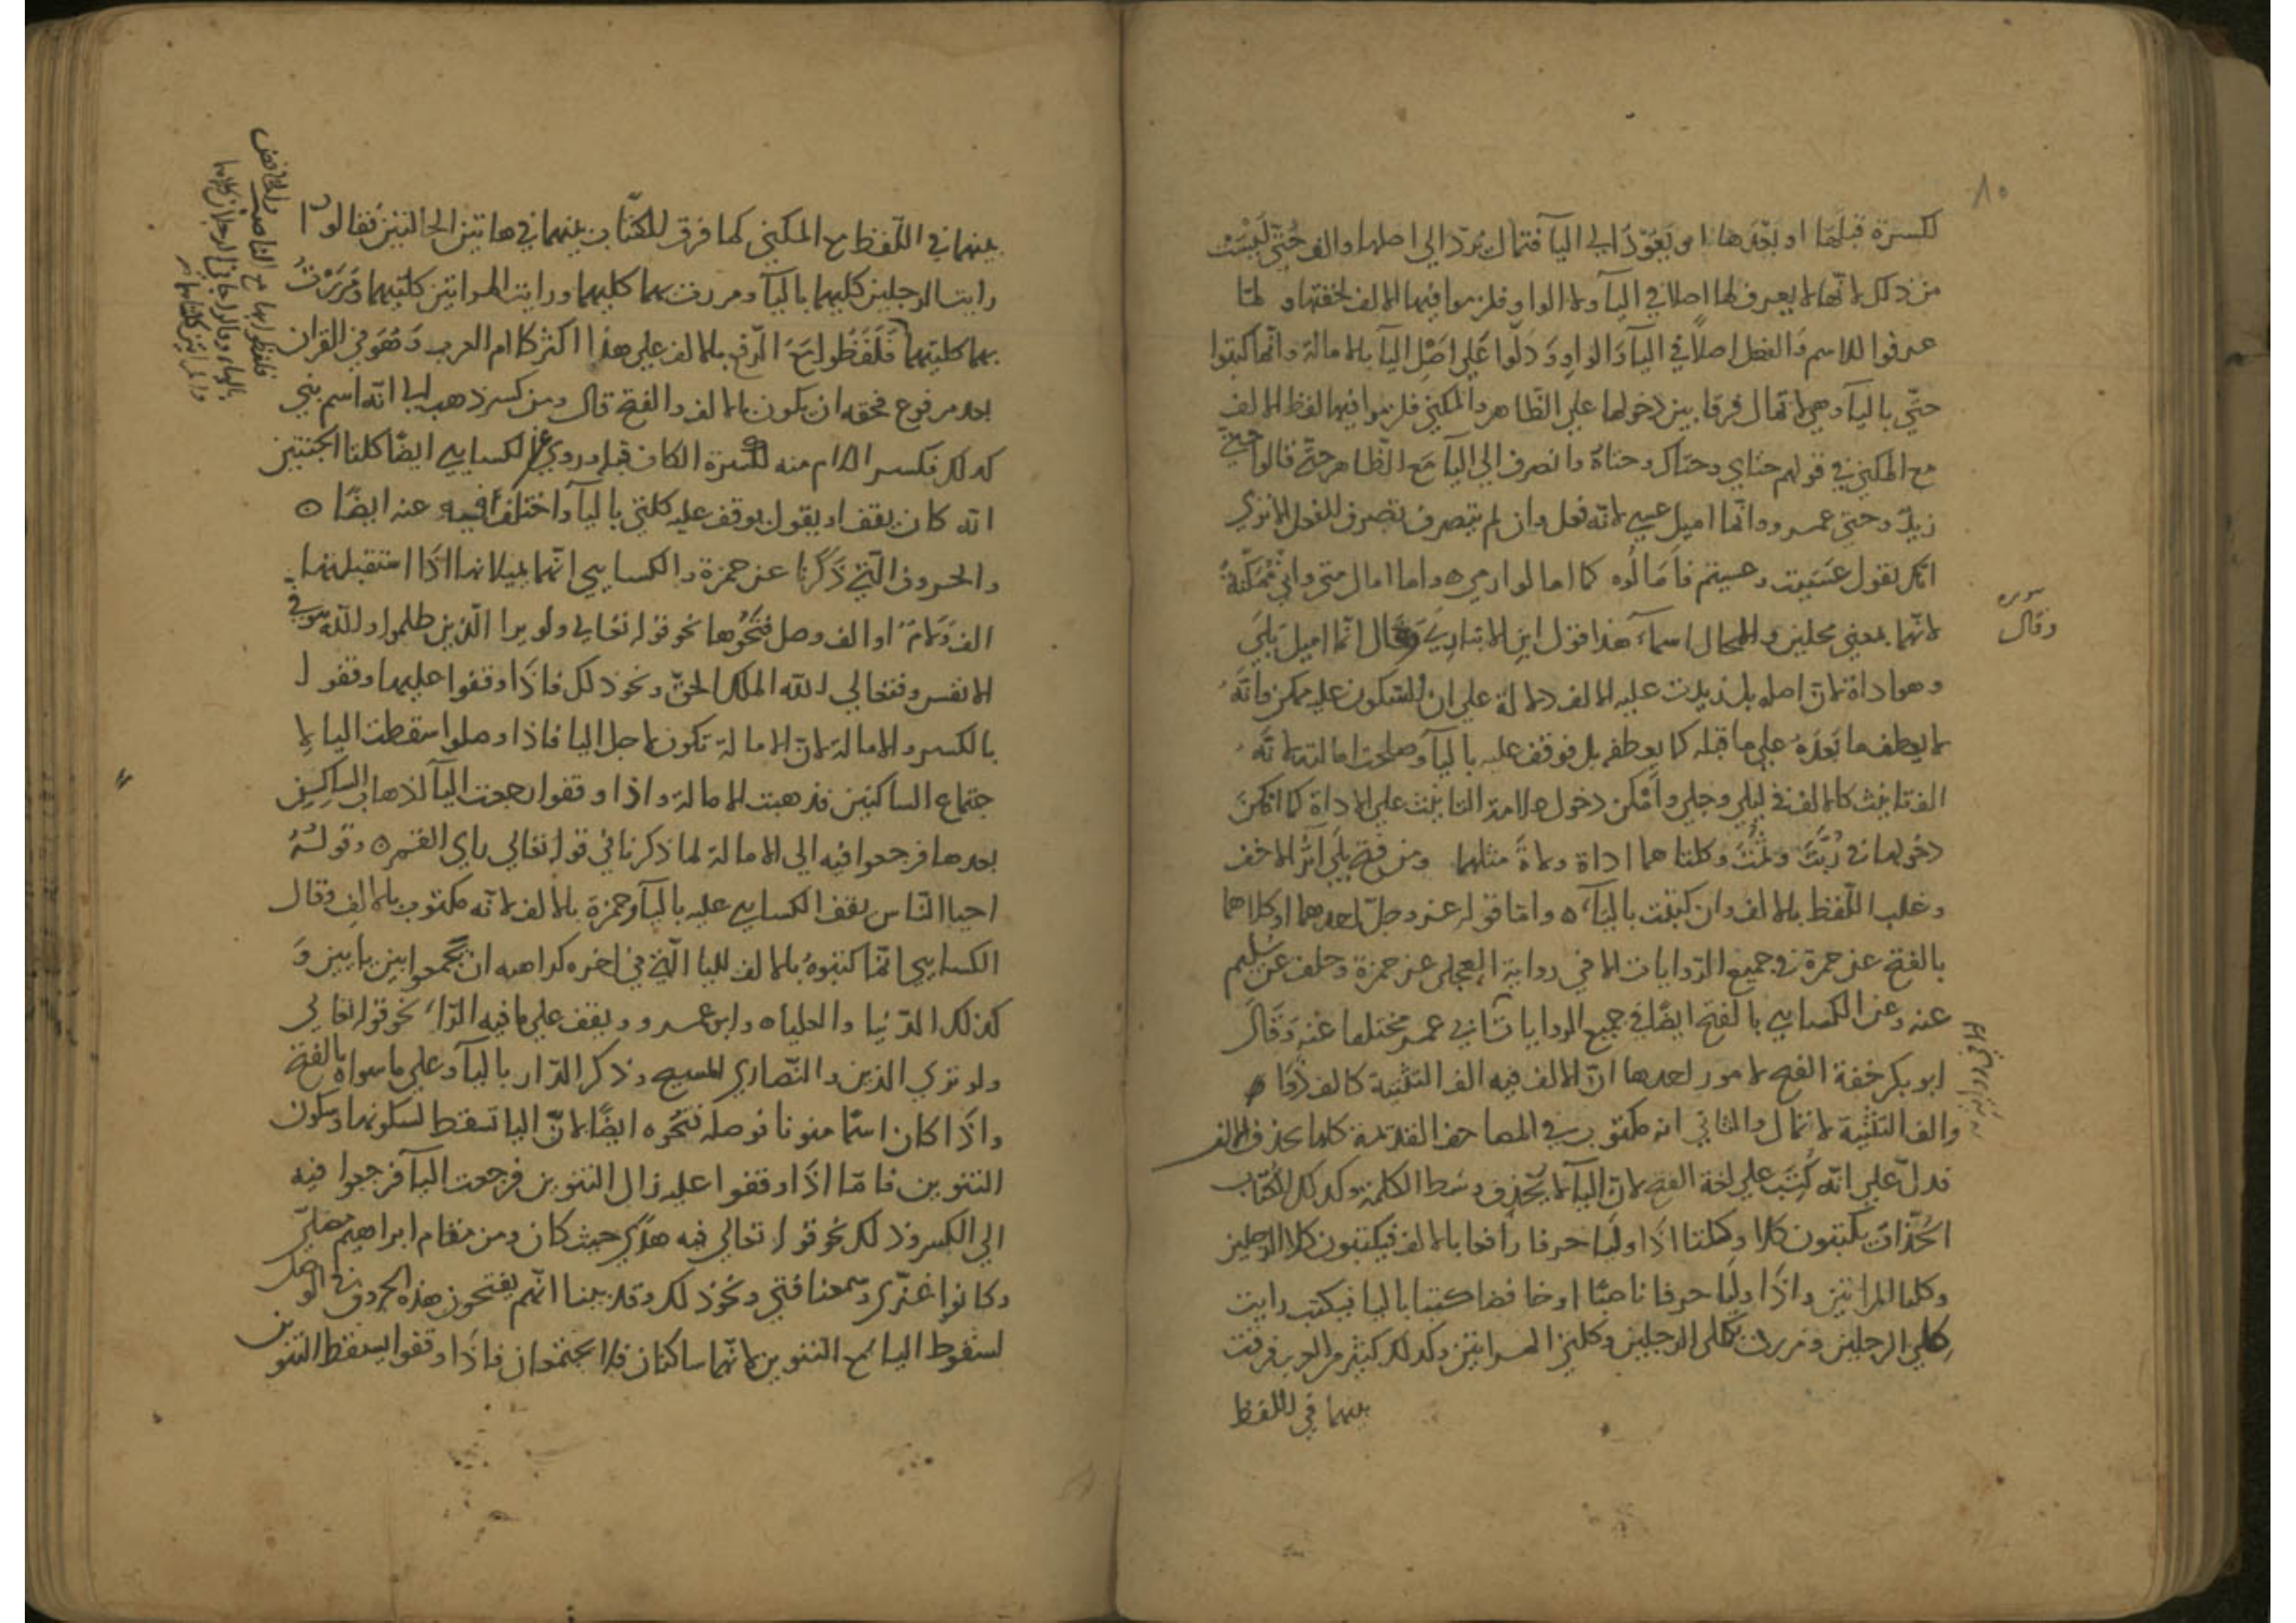 ١٠
لكسرة قبلها او بعدها او بعود الي اليآ فتمال يرد الي اصلها والف حتّي ليست
من ذلك لانّها لا يعرف لها اصلا في اليآ ولا الواو فلزموا فيها الالف لخفتها و لمّا
عرفوا للاسم والفعل اصلًا في اليآ والواو ودَلّوا عَلي اصْل اليآ بالامالة وانّما كتبوا
حتّي باليآ وهي لا تمال فرقا بين دخولها علي الظّاهر والمكنيّ فلزموا فيها لفظ الالف
مع المكنيّ في قولهم حتاي وحتاك وحتاهُ وانصرف الي اليآ مَع الظّاهر حتّي قالوا حتّي
زيدٍ وحتي عمرو وانّما اميل عسي لانّه فعل وان لم يتصرف تصرف الفعل الا تري
انك تقول عَسَيت وعسيتم فأمَالُوه كما امالوا رمي ٥ واما امال متي وانّي مُمَكّنةُ
لانّهما بمعني محلين والمحال اسمآء هذا قول ابن الانباري وقال انّما اميل بَلَي
سيبويه وقال
وهو اداة لانّ اصله بل زيدت عليه الالف دلالة علي ان السّكون عليه ممكن وانّهُ
لا يعطف ما بَعدَهُ علي ما قبله كما يعطف بل فوقف عليه باليآ وصلحت امالته لانّهُ
الف تانيث كالالف في ليلي وحبلي وأمْكن دخول علامة التانيث علي الاداة كما امكن
دخولها في رُبَّتَ وثُمَّتَ وكلتا هما اداة ولاةَ مثلهما ومن فتح بلي آثر الاخف
وغلب اللّفظ بالالف وان كتبت باليآء ٥ وامّا قوله عز وجلّ احدهما او كلاهما
بالفتح عن حمزة في جميع الرّوايات الا في رواية العجلي عن حمزة وخلف عن سُلَيم
عنه وعن الكسايي بالفتح ايضًا في جميع الروايات ابي عمر مختلفا عنه وقَال
ابو بكر خفة الفتح لامور احدها انّ الالف فيه الف التثنية كالف
والف التثنية لا تمال والثاني انه مكتوب في المصاحف القديمة كلها بحذف الالف
فدلّ علي انّه كُتِبَ علي لغة الفتح لانّ اليآ لا يُحْذف وسَط الكلمة وكذلك الكتّاب
الحُذّاق يكتبون كلا وكلتا اذا وليا حرفا رافعا بالالف فيكتبون كلا الرجلين
وكلتا المراتين واذا وليَا حرفا ناصبًا او خافضا كتبا باليا فيكتب رايت
كلي الرجلين ومررت بكلي الرجلين وكلتي المراتين وكذلك كثير من العرب فرقت
بينهما في اللفظ
بينهما في اللّفظ مع المكنيّ كما فرق للكتّاب بينهما في هاتين الحالتين فقالوا
رايت الرجلين كليهما باليآ ومررت بهما كليهما ورايت المراتين كلتيهما ومَرَرْتُ
بهما كلتيهما فَلَفَظُوا مَعَ الرّفع بالالف علي هذا اكثر كلام العرب وَهُوَ في القران
والخافض
فلفظوا بها مع الناصب
بالياء وقالوا جاني الرجلان كلاهما
والمراتين كلتاهما
بعد مرفوع فحقه ان يكون بالالف والفتح قال ومن كسر ذهب الي انّه اسم بني
كذلك فكسر اللام منه لكسرة الكاف قبله وروي عن الكسايي ايضًا كلتا الجنتين
انّه كان يقف او يقول يوقف عليه كلتي باليآ واختلف فيه عنه ايضًا ٥
والحروف الّتي ذكرنا عن حمزة والكسايي انّهما يميلانها اذَا استقبلتها
الف وَلامٌ او الف وصل فتَحُوها نحو قوله تعالي ولو يرا الّذين ظلموا والله يتوفي
الانفس وفتعالي الله الملك الحقّ ونحو ذلك فاذَا وقفوا عليها وقفوا
بالكسر والامالة لانّ الامالة تكون لاجل اليا فاذا وصلوا سقطت اليا لا
جتماع الساكنين فذهبت الامالة واذا وقفوا رجعت اليآ لذهاب السّاكنين
بعدها فرجعوا فيه الي الامالة لما ذكرنا في قوله تعالي راي القمر ٥ وقولُهُ
احيا النّاس يقف الكسايي عليه باليآ وحمزة بالالف لانّه مكتوب بالالف وقال
الكسايي انّما كتبوهُ بالالف لليا الّتي في اخره كراهيه ان يجمعوا بين ياءين وَ
كذلك الدّنيا والعليا ٥ وابو عمرو ويقف علي ما فيه الرّاء نحو قوله تعالي
ولو تري الذين والنّصاري المسيح وذكر الدّار باليآ وعلي ما سواه بالفتح
واذَا كان اسمًا منونا نوصله فتحوه ايضًا لانّ اليا تسقط لسكونها وسكون
التنوين فامّا اذَا وقفوا عليه زال التنوين فرجعت اليآ فرجعوا فيه
الي الكسر وذلك نحو قوله تعالي فيه هدًي حيث كان ومن مقام ابراهيم مصلّي
وكانوا غزّي وسمعنا فتي ونحو ذلك وقد بينا انّهم يفتحون هذه الحروف في الوصل
لسقوط اليا مع التنوين لانّهما ساكنان فلا يجتمعان فاذَا وقفوا سقط التنوين